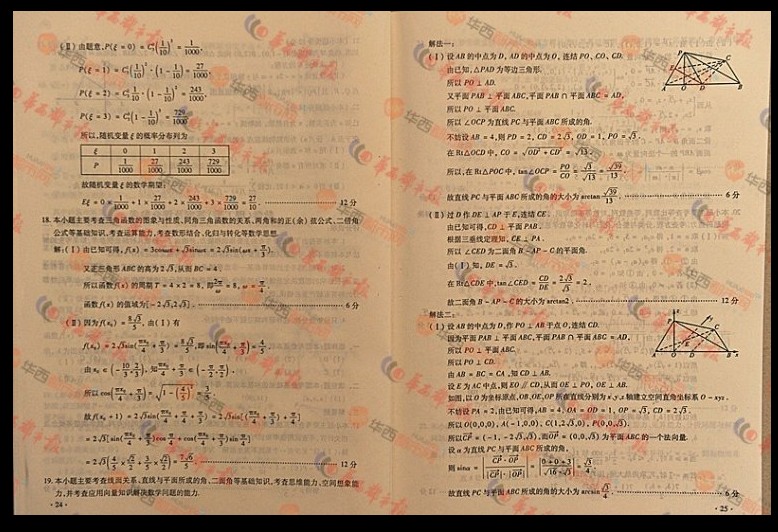 (Ⅱ)由题意,P(ξ = 0) = C₃⁰(1/10)³ = 1/1000,
P(ξ = 1) = C₃¹(1/10)²·(1 − 1/10) = 27/1000,
P(ξ = 2) = C₃²·1/10·(1 − 1/10)² = 243/1000,
P(ξ = 3) = C₃³(1 − 1/10)³ = 729/1000.
所以,随机变量 ξ 的概率分布列为
ξ 0 1 2 3
P 1/1000 27/1000 243/1000 729/1000
故随机变量 ξ 的数学期望:
Eξ = 0 × 1/1000 + 1 × 27/1000 + 2 × 243/1000 + 3 × 729/1000 = 27/10. 12 分
18. 本小题主要考查三角函数的图象与性质、同角三角函数的关系、两角和的正(余)弦公式、二倍角
公式等基础知识,考查运算能力,考查数形结合、化归与转化等数学思想.
解:(Ⅰ)由已知可得,f(x) = 3cosωx + √3sinωx = 2√3sin(ωx + π/3).
又正三角形 ABC 的高为 2√3,从而 BC = 4.
所以函数 f(x) 的周期 T = 4 × 2 = 8,即 2π/ω = 8,ω = π/4.
函数 f(x) 的值域为[−2√3,2√3]. 6 分
(Ⅱ)因为 f(x₀) = 8√3/5,由(Ⅰ)有
f(x₀) = 2√3sin(πx₀/4 + π/3) = 8√3/5,即 sin(πx₀/4 + π/3) = 4/5.
由 x₀ ∈ (−10/3,2/3),知 πx₀/4 + π/3 ∈ (−π/2,π/2).
所以 cos(πx₀/4 + π/3) = √(1 − (4/5)²) = 3/5.
故 f(x₀ + 1) = 2√3sin(πx₀/4 + π/4 + π/3) = 2√3sin[(πx₀/4 + π/3) + π/4]
= 2√3[sin(πx₀/4 + π/3)cos π/4 + cos(πx₀/4 + π/3)sin π/4]
= 2√3(4/5 × √2/2 + 3/5 × √2/2) = 7√6/5. 12 分
19. 本小题主要考查线面关系、直线与平面所成的角、二面角等基础知识,考查思维能力、空间想象能
力,并考查应用向量知识解决数学问题的能力.
· 24 ·
解法一:
(Ⅰ)设 AB 的中点为 D,AD 的中点为 O,连结 PO,CO,CD.
由已知,△PAD 为等边三角形.
所以 PO ⊥ AD.
又平面 PAB ⊥ 平面 ABC,平面 PAB ∩ 平面 ABC = AD,
所以 PO ⊥ 平面 ABC.
所以 ∠OCP 为直线 PC 与平面 ABC 所成的角.
不妨设 AB = 4,则 PD = 2,CD = 2√3,OD = 1,PO = √3.
在 Rt△OCD 中,CO = √(OD² + CD²) = √13.
所以,在 Rt△POC 中,tan∠OCP = PO/CO = √3/√13 = √39/13.
故直线 PC 与平面 ABC 所成的角的大小为 arctan √39/13. 6 分
(Ⅱ)过 D 作 DE ⊥ AP 于 E,连结 CE.
由已知可得,CD ⊥ 平面 PAB.
根据三垂线定理知,CE ⊥ PA.
所以 ∠CED 为二面角 B − AP − C 的平面角.
由(Ⅰ)知,DE = √3.
在 Rt△CDE 中,tan∠CED = CD/DE = 2√3/√3 = 2.
故二面角 B − AP − C 的大小为 arctan2. 12 分
解法二:
(Ⅰ)设 AB 的中点为 D,作 PO ⊥ AB 于点 O,连结 CD.
因为平面 PAB ⊥ 平面 ABC,平面 PAB ∩ 平面 ABC = AD,
所以 PO ⊥ 平面 ABC.
所以 PO ⊥ CD.
由 AB = BC = CA,知 CD ⊥ AB.
设 E 为 AC 中点,则 EO ∥ CD,从而 OE ⊥ PO,OE ⊥ AB.
如图,以 O 为坐标原点,OB,OE,OP 所在直线分别为 x,y,z 轴建立空间直角坐标系 O − xyz.
不妨设 PA = 2,由已知可得,AB = 4,OA = OD = 1,OP = √3,CD = 2√3.
所以 O(0,0,0),A(−1,0,0),C(1,2√3,0),P(0,0,√3).
所以 CP = (−1,−2√3,√3),而 OP = (0,0,√3) 为平面 ABC 的一个法向量.
设 α 为直线 PC 与平面 ABC 所成的角,
则 sinα = |CP · OP|/(|CP| · |OP|) = |(0 + 0 + 3)/(√16 · √3)| = √3/4.
故直线 PC 与平面 ABC 所成的角的大小为 arcsin √3/4. 6 分
· 25 ·